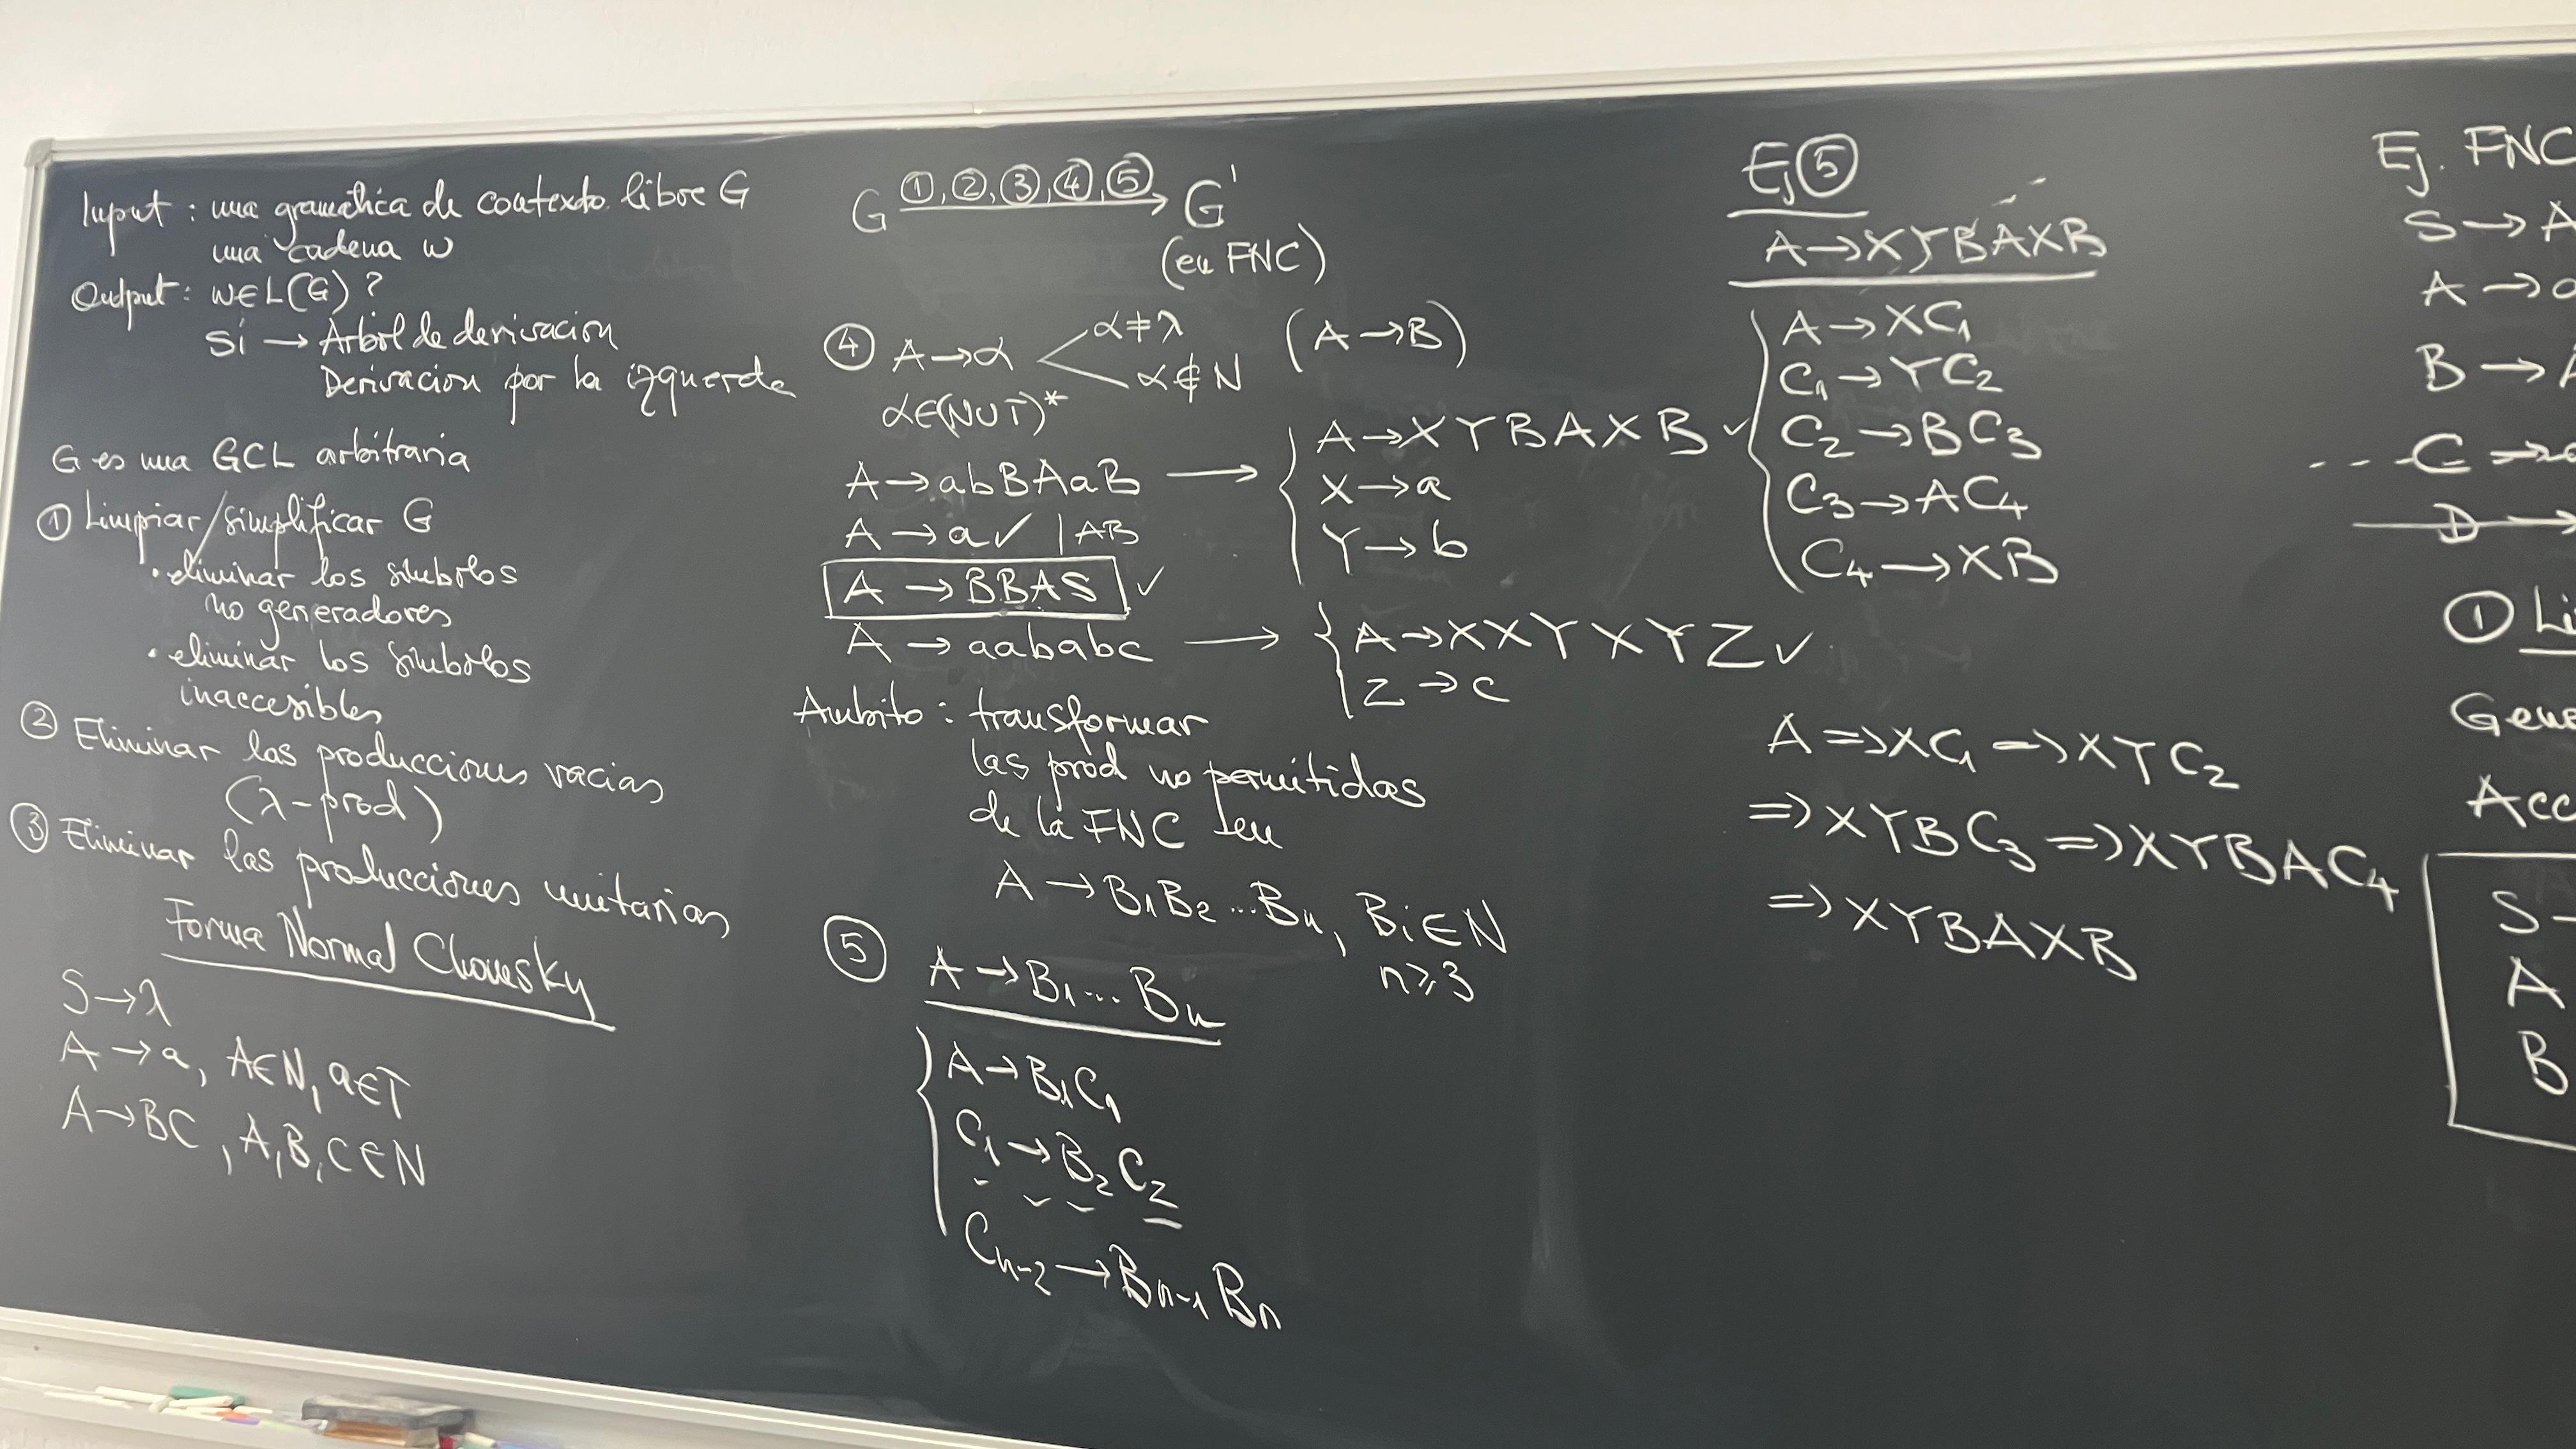 Input : una gramática de contexto libre G
una cadena w
Output : w∈L(G) ?
Sí → Árbol de derivación
Derivación por la izquerda
G es una GCL arbitraria
① Limpiar/simplificar G
• eliminar los símbolos
no generadores
• eliminar los símbolos
inaccesibles
② Eliminar las producciones vacias
(λ-prod)
③ Eliminar las producciones unitarias
Forma Normal Chomsky
S→λ
A→a, A∈N, a∈T
A→BC, A,B,C∈N
G ①,②,③,④,⑤→ G'
(en FNC)
④ A→α
α≠λ
α∉N
(A→B)
α∈(N∪T)*
A→abBAaB →
A→XYBAXB ✓
X→a
Y→b
A→a✓ |AB
A→BBAS ✓
A→aababc →
A→XXYXYZ✓
Z→c
Ámbito : transformar
las prod no permitidas
de la FNC en
A→B₁B₂...Bn, Bi∈N
n⩾3
⑤ A→B₁...Bn
A→B₁C₁
C₁→B₂C₂
Cn-2→Bn-1Bn
Ej⑤
A→XYBAXB
A→XC₁
C₁→YC₂
C₂→BC₃
C₃→AC₄
C₄→XB
A⇒XC₁⇒XYC₂
⇒XYBC₃⇒XYBAC₄
⇒XYBAXB
Ej. FNC
S→A
A→
B→
C→
D→
① Li
Gene
Acc
S
A
B